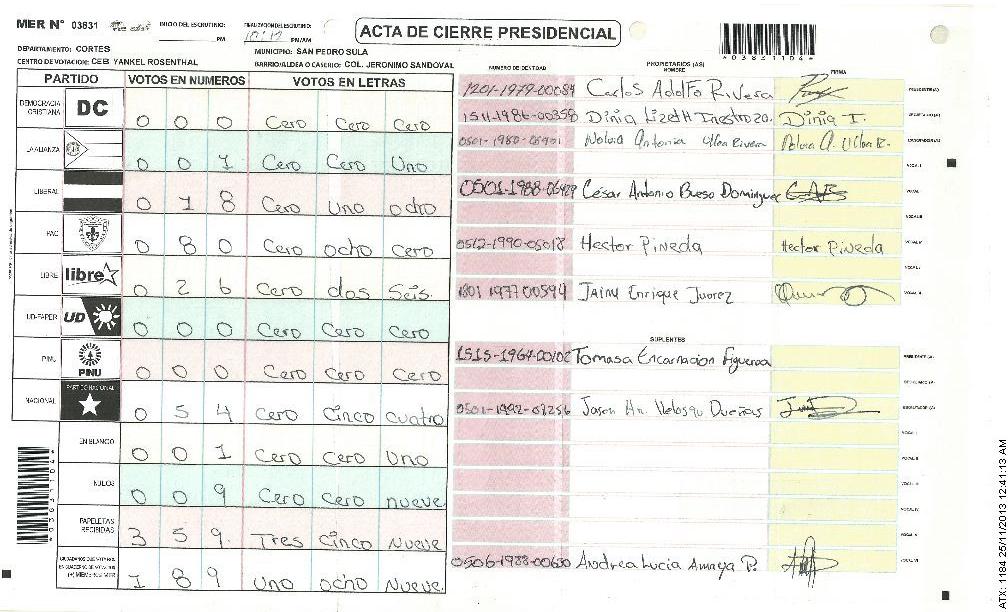 MER N° 03831
INICIO DEL ESCRUTINIO: PM
FINALIZACION DEL ESCRUTINIO: PM/AM
ACTA DE CIERRE PRESIDENCIAL
DEPARTAMENTO: CORTES
MUNICIPIO: SAN PEDRO SULA
CENTRO DE VOTACION: CEB YANKEL ROSENTHAL
BARRIO/ALDEA O CASERIO: COL. JERONIMO SANDOVAL
*03831104*
PARTIDO VOTOS EN NUMEROS VOTOS EN LETRAS
DEMOCRACIA CRISTIANA DC 0 0 0 Cero Cero Cero
LA ALIANZA 0 0 1 Cero Cero Uno
LIBERAL 0 1 8 Cero Uno ocho
PAC 0 8 0 Cero ocho Cero
LIBRE libre 0 2 6 Cero dos Seis.
UD-FAPER UD 0 0 0 Cero Cero Cero
PINU PINU 0 0 0 Cero Cero Cero
NACIONAL PARTIDO NACIONAL 0 5 4 Cero Cinco Cuatro
EN BLANCO 0 0 1 Cero Cero Uno
NULOS 0 0 9 Cero Cero nueve
PAPELETAS RECIBIDAS 3 5 9 Tres Cinco Nueve
1 8 9 Uno ocho Nueve
NUMERO DE IDENTIDAD PROPIETARIOS (AS) NOMBRE FIRMA
1201-1979-00084 Carlos Adolfo Rivera PRESIDENTE(A)
1511-1986-00358 Dinia Lizeth Inestroza. Dinia I. SECRETARIO(A)
Antonia Rivera ESCRUTADOR(A)
VOCAL I
César Antonio Bueso Dominguez
0512-1990-05018 Hector Pineda Hector Pineda
1801 1977 00594 Enrique Juarez
SUPLENTES
1515-1964-00102 Tomasa Encarnacion Figueroa PRESIDENTE(A)
SECRETARIO(A)
Dueñas ESCRUTADOR(A)
VOCAL I
0506-1988-00630 Andrea Lucia Amaya P.
*03831104*
ATX: 1184 25/11/2013 12:41:13 AM